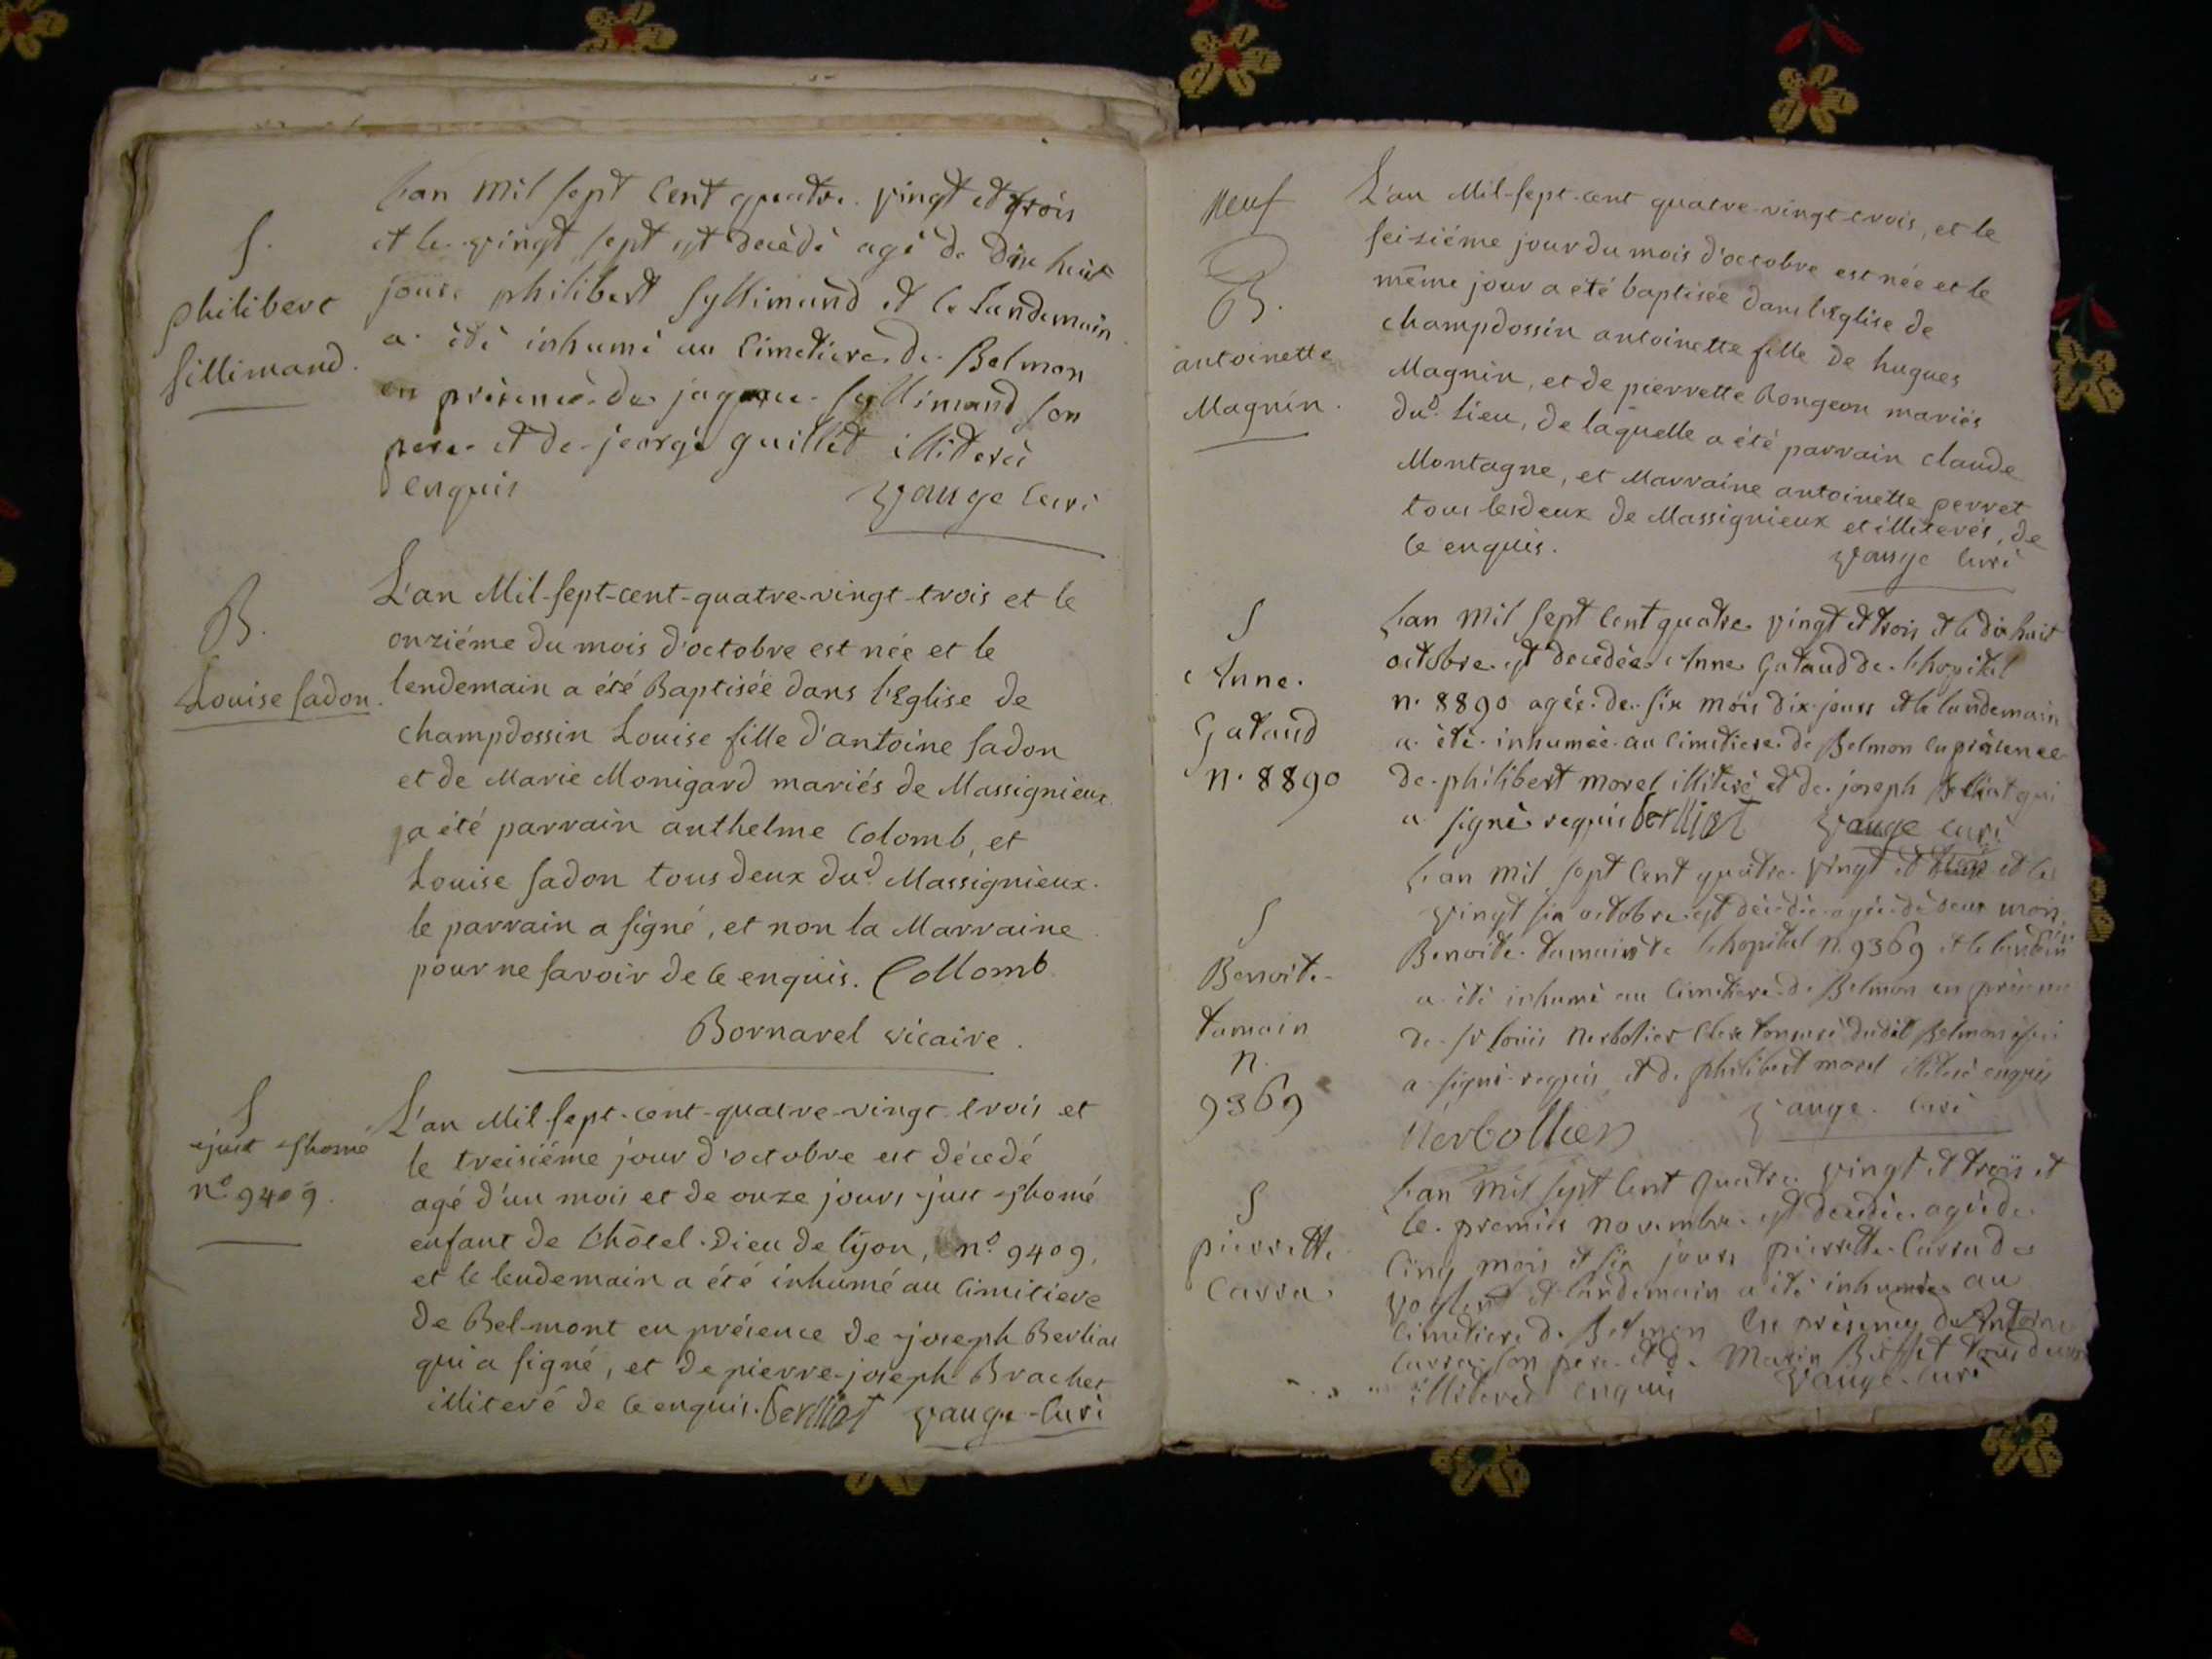 S.
philibert
sillimand.
Lan mil sept cent quatre vingt et trois
et le vingt sept est decédé agé de dix huit
jours philibert syllimand et le landemain
a été inhumé au cimetiere de Belmon
en présence de jaque syllimand son
pere et de jeorge guillet illiteré
enquis vauge curé
B.
Louise sadon.
L'an Mil-sept-cent-quatre-vingt-trois et le
onziéme du mois d'octobre est née et le
lendemain a été Baptisée dans l'Eglise de
champdossin Louise fille d'antoine sadon
et de Marie Monigard mariés de Massignieux.
ja été parrain anthelme Colomb, et
Louise sadon tous deux dud. Massignieux.
le parrain a signé, et non la Marraine
pour ne savoir de ce enquis. Collomb
Bornarel vicaire.
S
just thomé
n° 9409.
L'an Mil-sept-cent-quatre-vingt-trois et
le treisiéme jour d'octobre est décedé
agé d'un mois et de onze jours just thomé
enfant de l'hôtel-Dieu de lyon, n° 9409,
et le lendemain a été inhumé au cimitiere
de Belmont en présence de joseph Berliat
qui a signé, et de pierre-joseph Brachet
illiteré de ce enquis. berlliat vauge curé
neuf
B.
antoinette
Magnin.
L'an Mil-sept-cent quatre-vingt-trois, et le
seiziéme jour du mois d'octobre est née et le
même jour a été baptisée dans l'Eglise de
champdossin antoinette fille de hugues
Magnin, et de pierrette Rongeon mariés
dud. lieu, de laquelle a été parrain claude
Montagne, et Marraine antoinette perret
tous les deux de Massignieux et illiterés, de
ce enquis. vauge curé
S
Anne
Gataud
n. 8890
Lan mil sept cent quatre vingt et trois et le dix huit
octobre est decedée Anne Gataud de l'hopital
n. 8890 agée de six mois dix jours et le landemain
a été inhumée au cimetiere de Belmon en présence
de philibert morel illiteré et de joseph berliat qui
a signé requis berlliat vauge curé
S
Benoite
tamain
n.
9369
Lan mil sept cent quatre vingt et trois et le
vingt six octobre est décédée agée de deux mois
Benoite tamain de l'hopital n. 9369 et le
a été inhumé au cimetiere de Belmon en présence
de sr louis nerbotier clerc tonsuré dudit Belmon qui
a signé requis et de philibert morel illiteré enquis
Nerbollier vauge curé
S
pierrette
Carra
Lan mil sept cent quatre vingt et trois et
le premier novembre est decedée agée de
cinq mois et six jours pierrette Carra de
et landemain a été inhumée au
cimetiere de Belmon en présence de Antoine
Carra son pere et de Marin tous deux
illiterés enquis vauge curé